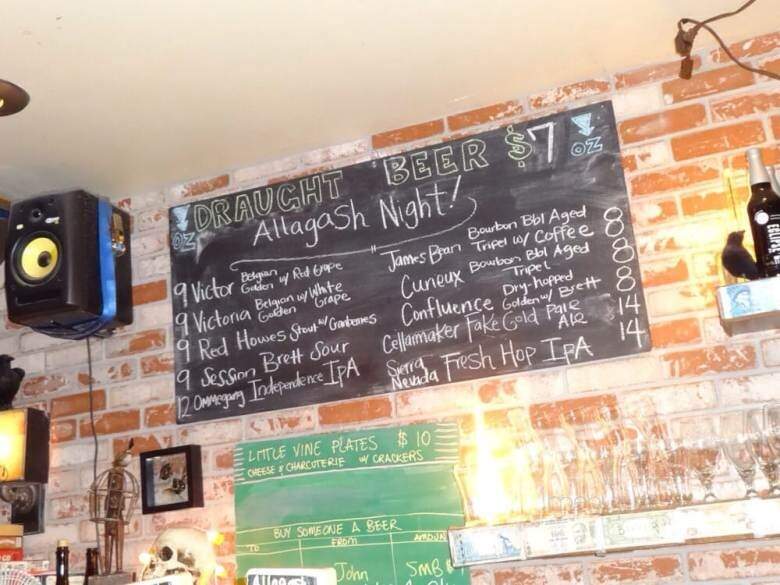 DRAUGHT BEER $7
OZ
OZ
Allagash Night!
9 Victor Belgian Golden w/ Red Grape
9 Victoria Belgian w/ White Golden Grape
9 Red Howes Stout w/ Cranberries
9 Session Brett Sour
12 Ommegang Independence IPA
James Bean Bourbon Bbl Aged Tripel w/ Coffee 8
Curieux Bourbon Bbl Aged Tripel 8
Confluence Dry-hopped Golden w/ Brett 8
Cellarmaker Fake Gold Pale Ale 14
Sierra Nevada Fresh Hop IPA 14
LITTLE VINE PLATES $10
CHEESE & CHARCUTERIE W/ CRACKERS
BUY SOMEONE A BEER
TO FROM
John SMB
Allagash